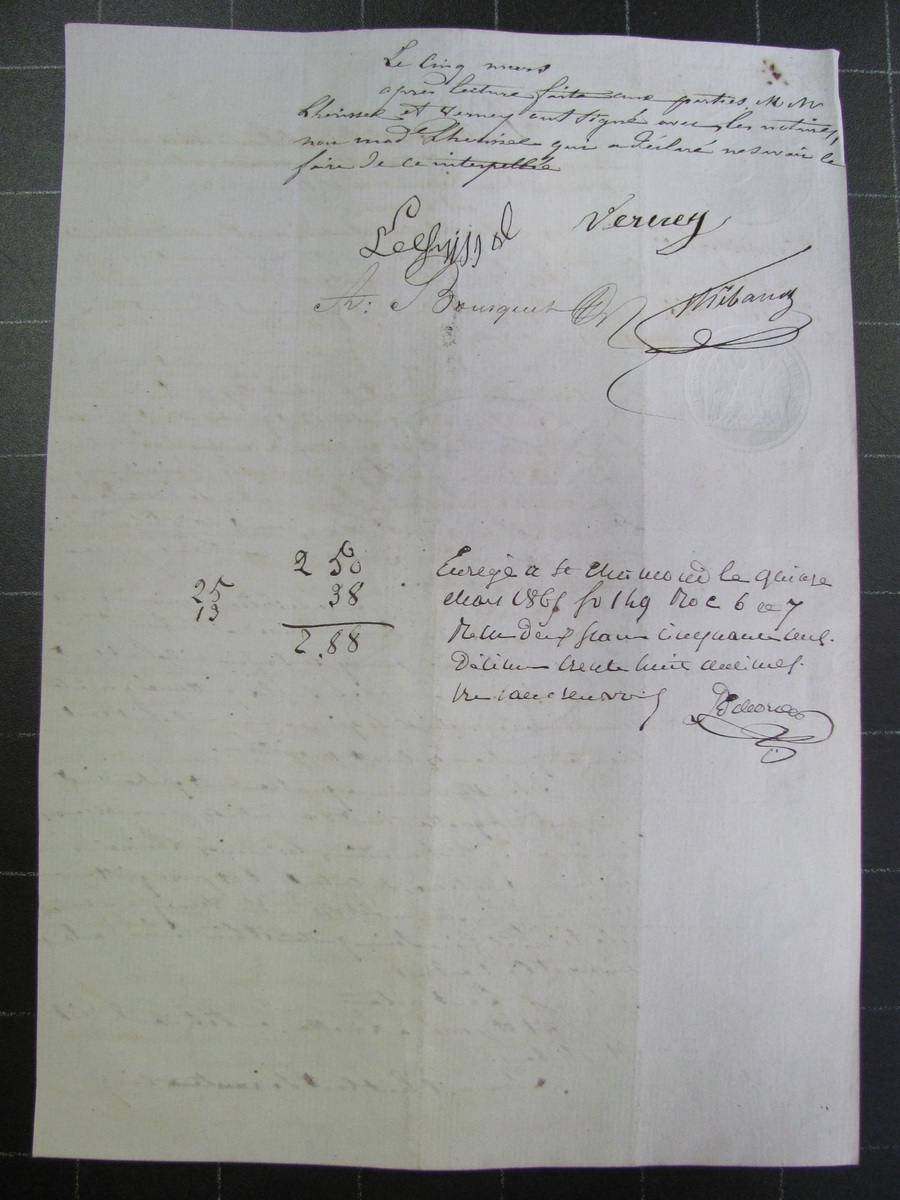 Le cinq mars
après lecture faite aux parties, MM
et Verney ont signé avec les notaires,
non mad.e qui a déclaré ne savoir le
faire de ce interpellée
Verney
Bousquet Thibaud
2 50
25 38
13
2,88
Enregé a St Chamond le quinze
Mars 186 fo 149 Ro C 6 et 7
Recu deux francs cinquante cent.
Décime trente huit centimes.